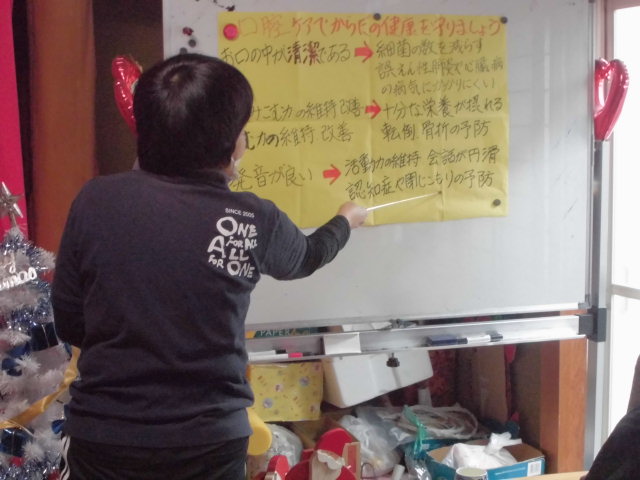 口腔ケアでからだの健康を守りましょう
お口の中が清潔である ➡ 細菌の数を減らす
誤えん性肺炎や心臓病
の病気にかかりにくい
みこむ力の維持改善 ➡ 十分な栄養が摂れる
む力の維持 改善 転倒 骨折の予防
発音が良い ➡ 活動力の維持 会話が円滑
認知症や閉じこもりの予防
SINCE 2005
ONE
FOR ALL
ALL
FOR ONE
PAPER